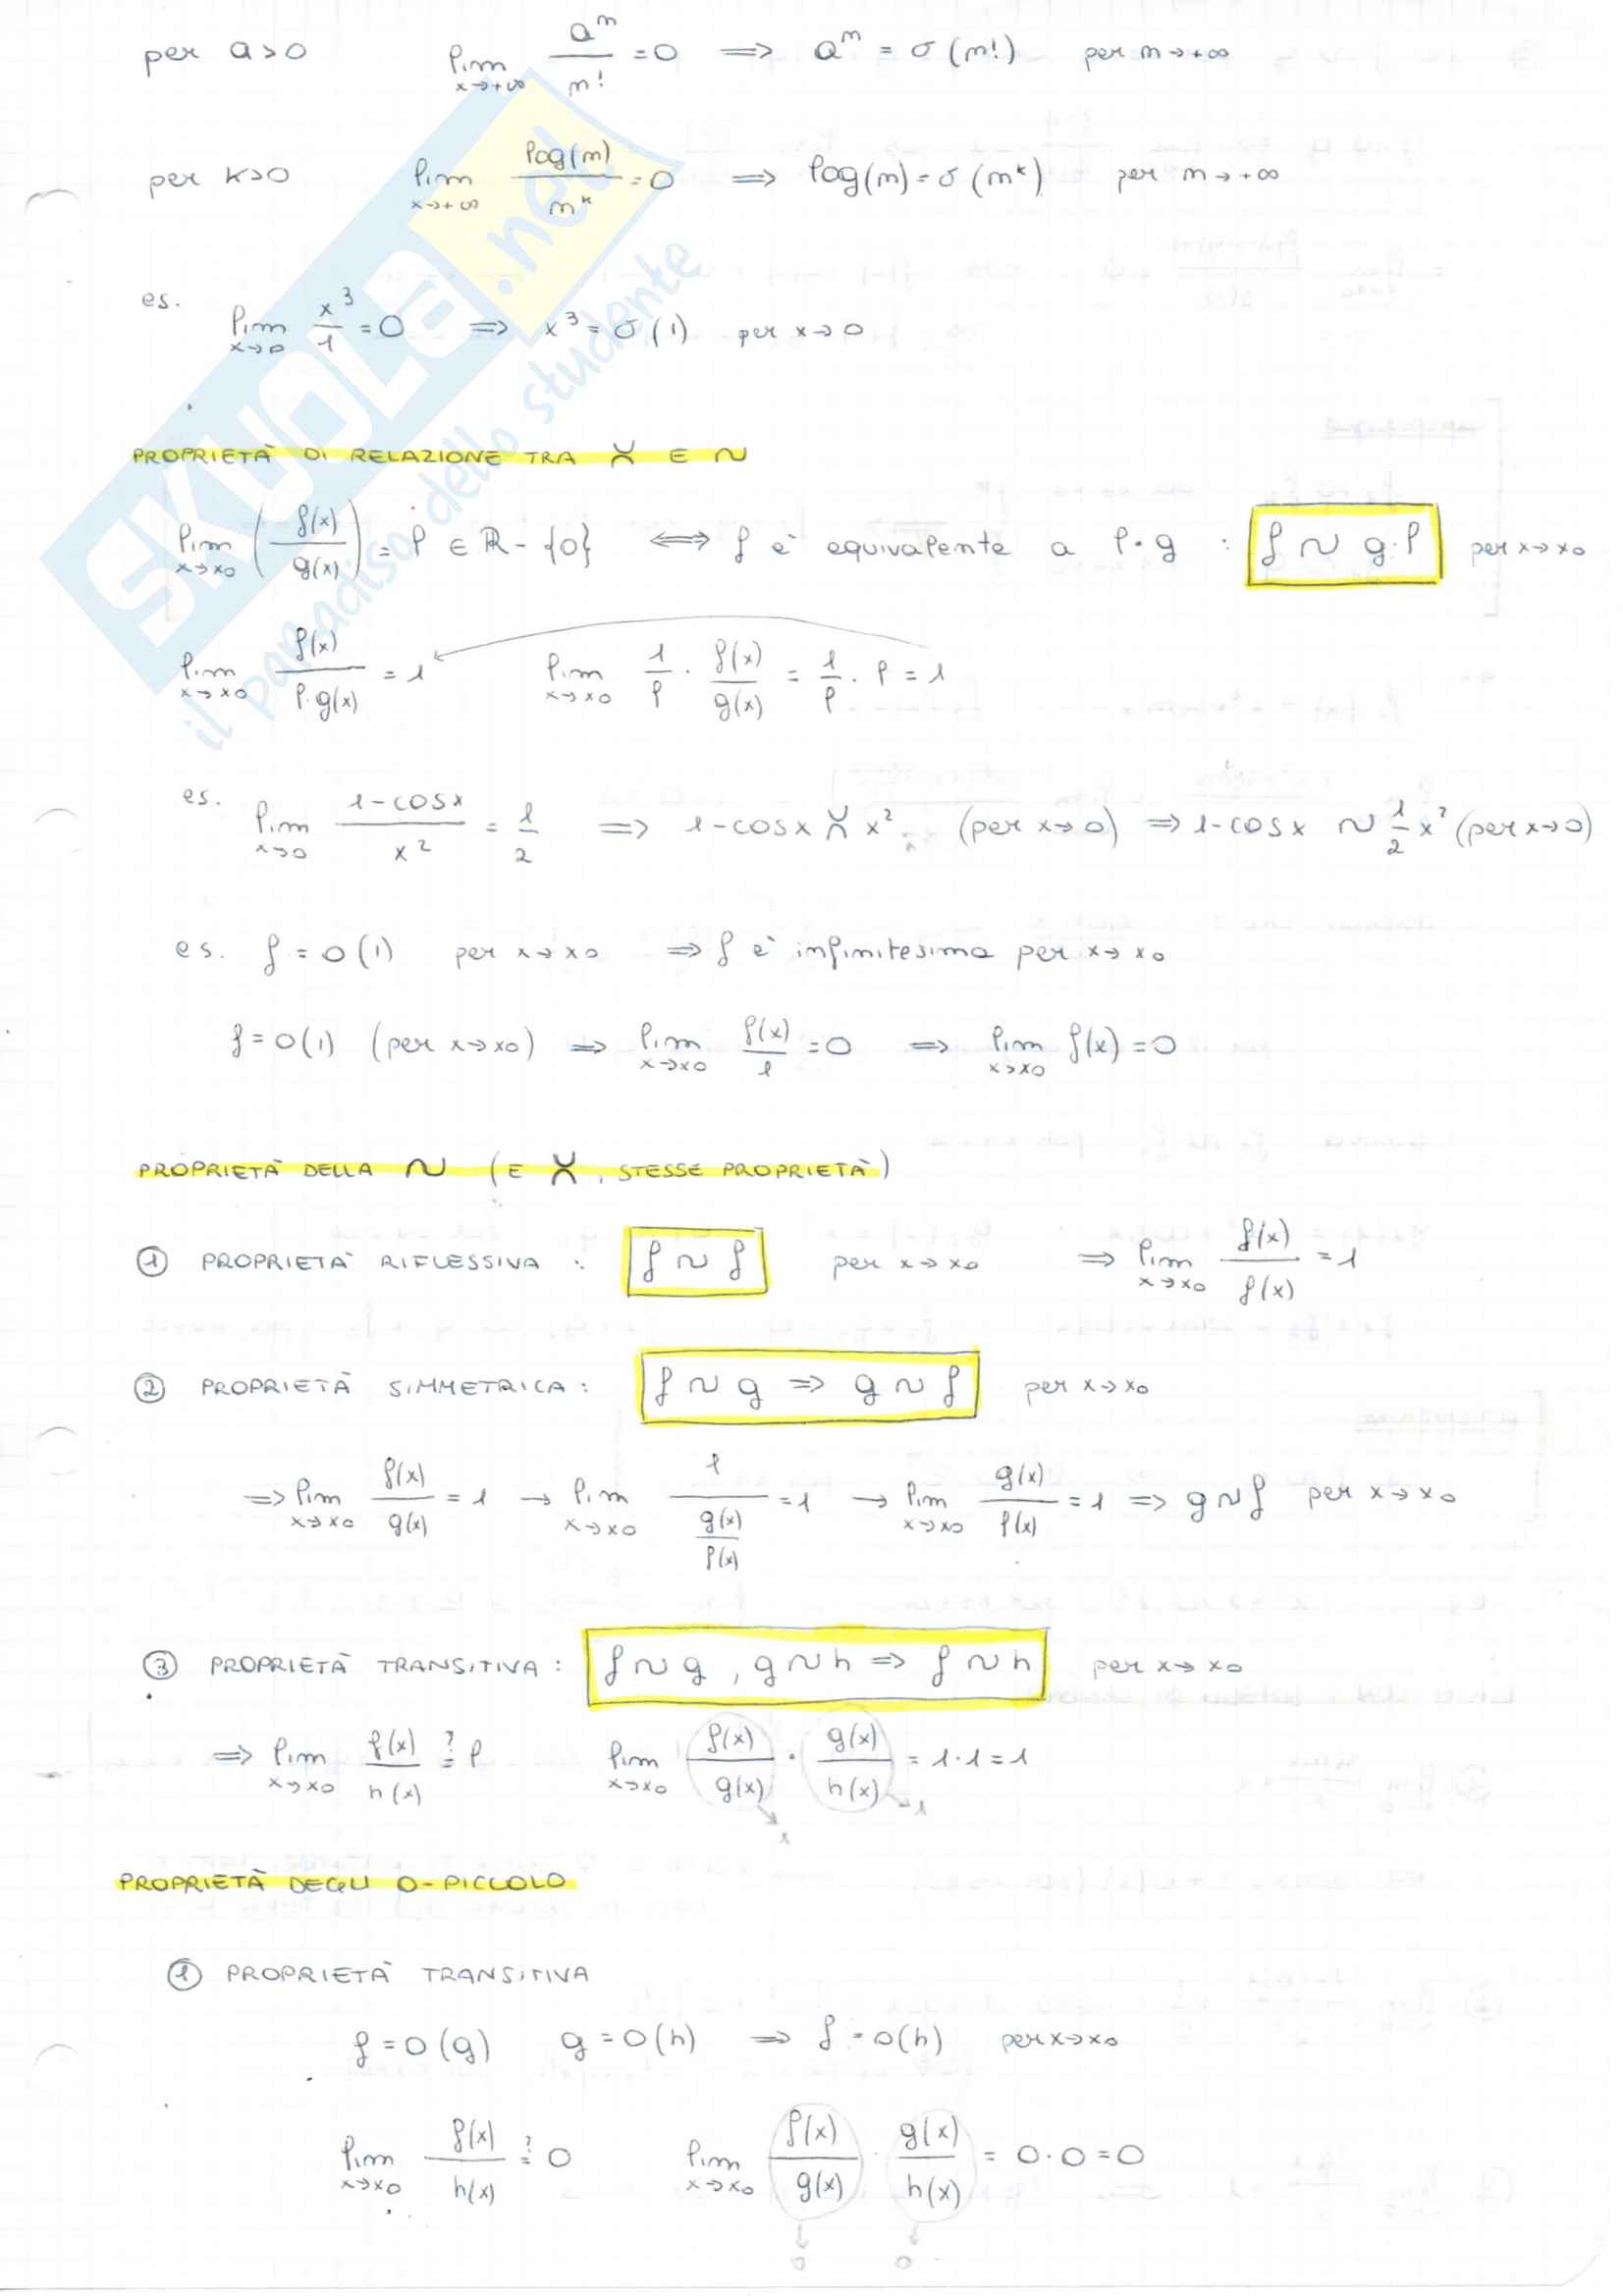 per a>0 lim x→+∞ a^n/n! = 0 ⟹ a^n = o(n!) per n→+∞
per k>0 lim x→+∞ log(n)/n^k = 0 ⟹ log(n) = o(n^k) per n→+∞
es. lim x→0 x^3/1 = 0 ⟹ x^3 = o(1) per x→0
PROPRIETÀ DI RELAZIONE TRA ≍ E ~
lim x→x0 (f(x)/g(x)) = l ∈ ℝ-{0} ⟺ f è equivalente a l·g : f ~ g·l per x→x0
lim x→x0 f(x)/(l·g(x)) = 1 lim x→x0 1/l · f(x)/g(x) = 1/l · l = 1
es. lim x→0 (1-cosx)/x^2 = 1/2 ⟹ 1-cosx ≍ x^2 (per x→0) ⟹ 1-cosx ~ 1/2 x^2 (per x→0)
es. f = o(1) per x→x0 ⟹ f è infinitesima per x→x0
f = o(1) (per x→x0) ⟹ lim x→x0 f(x)/1 = 0 ⟹ lim x→x0 f(x) = 0
PROPRIETÀ DELLA ~ (E ≍, STESSE PROPRIETÀ)
① PROPRIETÀ RIFLESSIVA : f ~ f per x→x0 ⟹ lim x→x0 f(x)/f(x) = 1
② PROPRIETÀ SIMMETRICA : f ~ g ⟹ g ~ f per x→x0
⟹ lim x→x0 f(x)/g(x) = 1 → lim x→x0 1/(g(x)/f(x)) = 1 → lim x→x0 g(x)/f(x) = 1 ⟹ g ~ f per x→x0
③ PROPRIETÀ TRANSITIVA : f ~ g , g ~ h ⟹ f ~ h per x→x0
⟹ lim x→x0 f(x)/h(x) ?= l lim x→x0 f(x)/g(x) · g(x)/h(x) = 1·1 = 1
1 1
PROPRIETÀ DEGLI O-PICCOLO
① PROPRIETÀ TRANSITIVA
f = o(g) g = o(h) ⟹ f = o(h) per x→x0
lim x→x0 f(x)/h(x) ?= 0 lim x→x0 f(x)/g(x) · g(x)/h(x) = 0·0 = 0
↓ ↓
0 0
SKUOLA.net
il paradiso dello studente